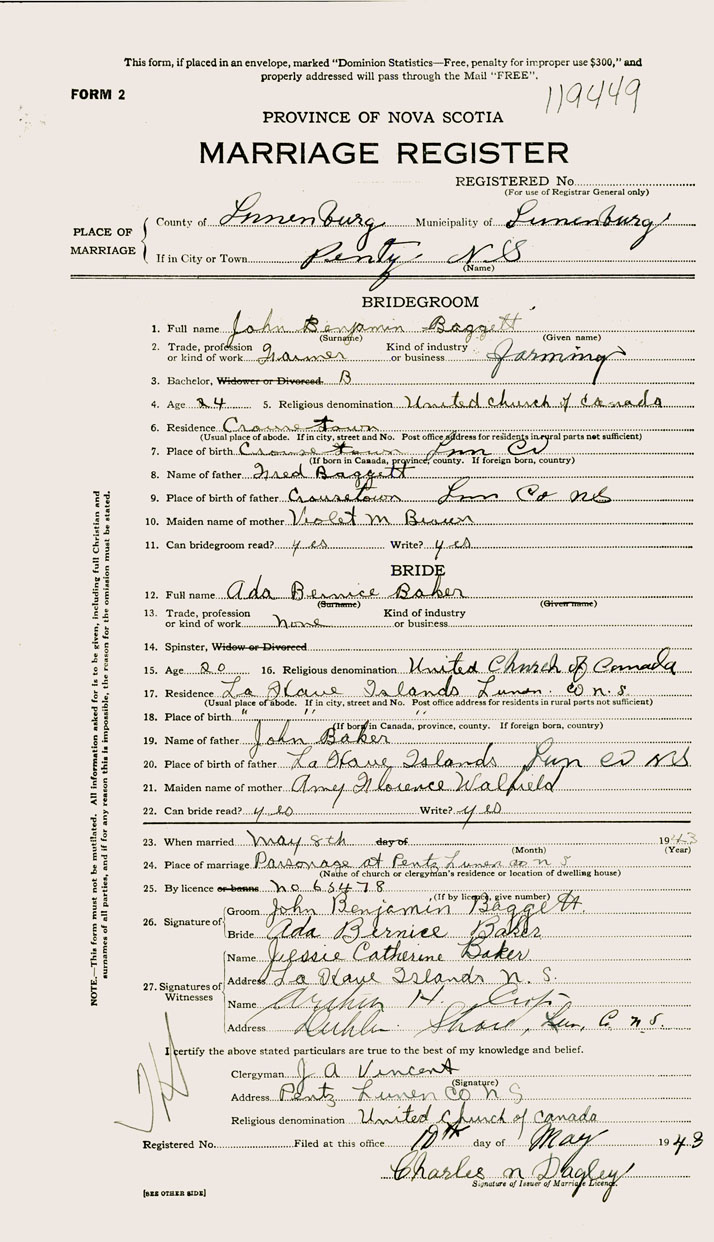 This form, if placed in an envelope, marked "Dominion Statistics—Free, penalty for improper use $300," and
properly addressed will pass through the Mail "FREE".
FORM 2
119449
PROVINCE OF NOVA SCOTIA
MARRIAGE REGISTER
REGISTERED No.
(For use of Registrar General only)
PLACE OF MARRIAGE
County of Lunenburg Municipality of Lunenburg
If in City or Town Pentz NS
(Name)
BRIDEGROOM
1. Full name John Benjamin Baggett
(Surname) (Given name)
2. Trade, profession or kind of work Farmer Kind of industry or business farming
3. Bachelor, Widower or Divorced B
4. Age 24 5. Religious denomination United church of Canada
6. Residence Crousetown
(Usual place of abode. If in city, street and No. Post office address for residents in rural parts not sufficient)
7. Place of birth Crousetown Lun Co
(If born in Canada, province, county. If foreign born, country)
8. Name of father Fred Baggett
9. Place of birth of father Crousetown Lun Co NS
10. Maiden name of mother Violet M
11. Can bridegroom read? yes Write? yes
BRIDE
12. Full name Ada Bernice Baker
(Surname) (Given name)
13. Trade, profession or kind of work none Kind of industry or business
14. Spinster, Widow or Divorced
15. Age 20 16. Religious denomination United Church of Canada
17. Residence La Have Islands Lunen. Co N.S.
(Usual place of abode. If in city, street and No. Post office address for residents in rural parts not sufficient)
18. Place of birth " " "
(If born in Canada, province, county. If foreign born, country)
19. Name of father John Baker
20. Place of birth of father La Have Islands Lun Co NS
21. Maiden name of mother Amy Florence
22. Can bride read? yes Write? yes
23. When married May 8th day of 1943
(Month) (Year)
24. Place of marriage Parsonage at Pentz Lunen co N S
(Name of church or clergyman's residence or location of dwelling house)
25. By licence or banns No 65478
(If by licence, give number)
26. Signature of
Groom John Benjamin Baggett.
Bride Ada Bernice Baker
27. Signatures of Witnesses
Name Jessie Catherine Baker
Address La Have Islands N. S.
Name H.
Address Dublin Shore, Lun. C. N.S.
I certify the above stated particulars are true to the best of my knowledge and belief.
Clergyman J A Vincent
(Signature)
Address Pentz Lunen Co N S
Religious denomination United Church of Canada
Registered No. Filed at this office 10th day of May 1943
Charles N Dagley
Signature of Issuer of Marriage Licence.
[SEE OTHER SIDE]
NOTE.—This form must not be mutilated. All information asked for is to be given, including full Christian and
surnames of all parties, and if for any reason this is impossible, the reason for the omission must be stated.